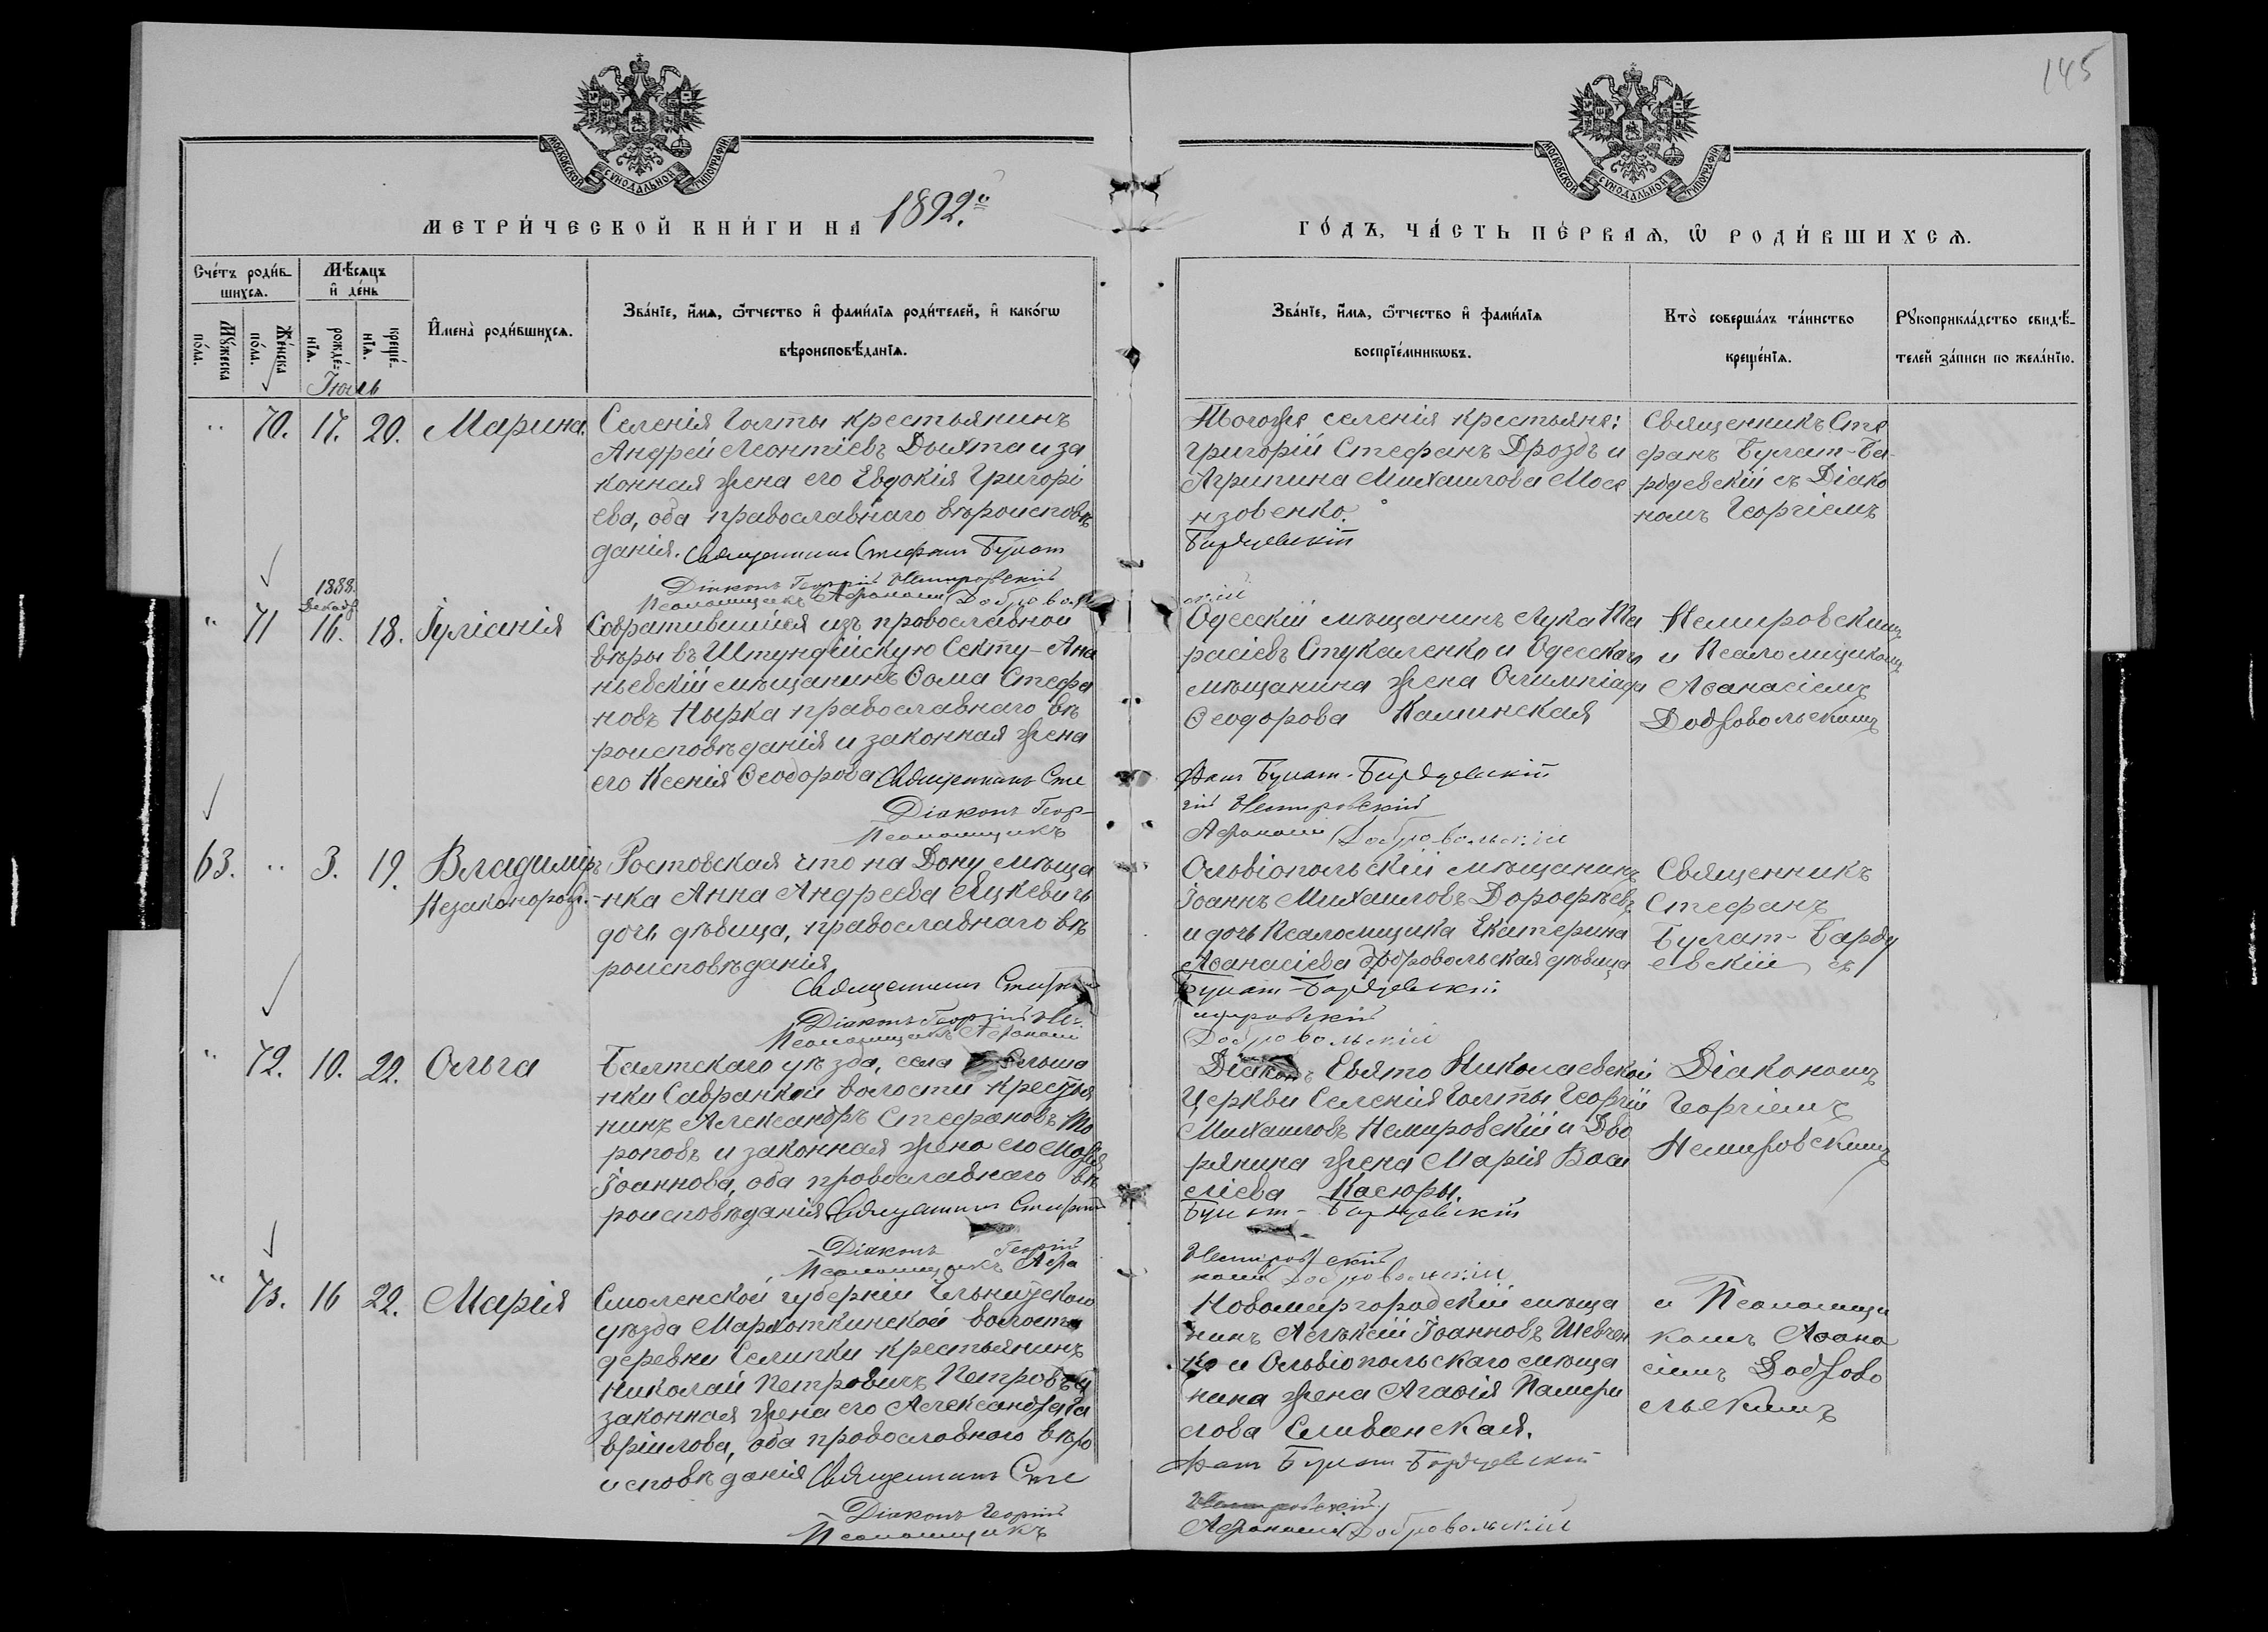 145
МОСКОВСКОЙ СѴНОДАЛЬНОЙ ТИПОГРАФІИ
МОСКОВСКОЙ СѴНОДАЛЬНОЙ ТИПОГРАФІИ
МЕТРИ́ЧЕСКОЙ КНИ́ГИ НА 1892.
ГО́ДЪ, ЧА́СТЬ ПЕ́РВАѦ, Ѡ҆ РОДИ́ВШИХСѦ.
Сче́тъ роди́в-
шихсѧ.
Мѣ́сѧцъ
и҆ де́нь
Мꙋ́жеска
по́ла.
Же́нска
по́ла.
рожде́-
нїѧ.
креще́-
нїѧ.
И҆мена̀ роди́вшихсѧ.
Зва́нїе, и҆́мѧ, ѻ҆́тчество и҆ фами́лїѧ роди́телей, и҆ како́гѡ
вѣроисповѣ́данїѧ.
Зва́нїе, и҆́мѧ, ѻ҆́тчество и҆ фами́лїѧ
воспрїе́мникѡвъ.
Кто̀ соверша́лъ та́инство
креще́нїѧ.
Рꙋкоприкла́дство свидѣ́-
телей за́писи по жела́нїю.
Іюль
" 70. 17. 20. Марина.
Селенія Голты крестьянинъ
Андрей Леонтіевъ Дыхта и за
конная жена его Евдокія Григорі
ева, оба православнаго вѣроисповѣ
данія. Священникъ Стефанъ Булат
Діаконъ Георгій Немировскій
Псаломщикъ Афанасій Доброволь
Тогоже селенія крестьяне:
Григорій Стефанъ Дроздъ и
Агрипина Михаилова Мосе
нзовенко.
Бардуевскій
скій
Священникъ Сте
фанъ Булат-Ба
рдуевскій съ Діако
номъ Георгіемъ
1888.
Декабр.
" 71 16. 18. Іуліанія
Совратившійся изъ православной
вѣры въ Штундійскую Секту - Ана
ньевскій мѣщанинъ Ѳома Стефа
новъ Кырка православнаго вѣ
роисповѣданія и законная жена
его Ксенія Ѳеодорова Священникъ Сте
Діаконъ Геор-
Псаломщикъ
Одесскій мѣщанинъ Лука Та
расіевъ Стукаленко и Одесскаго
мѣщанина жена Олимпіада
Ѳеодорова Каминская
фанъ Булат-Бардуевскій
гій Немировскій
Афанасій Добровольскій
Немировскимъ
и Псаломщикомъ
Аѳанасіемъ
Добровольскимъ
63. " 3. 19. Владиміръ
Незаконорожд.
Ростовская что на Дону мѣща
нка Анна Андреева Яцкевичъ
дочь дѣвица, православнаго вѣ
роисповѣданія
Священникъ Стефанъ
Діаконъ Георгій Не-
Псаломщикъ Афанасій
Ольвіопольскій мѣщанинъ
Іоаннъ Михаиловъ Дорофѣевъ
и дочь Псаломщика Екатерина
Аѳанасіева Добровольская дѣвица
Булат-Бардуевскій
мировскій
Добровольскій
Священникъ
Стефанъ
Булат-Барду
евскій съ
" 72. 10. 22. Ольга
Балтскаго уѣзда, села Ольша
нки Савранской волости крестья
нинъ Александръ Стефановъ То
роповъ и законная жена его Марія
Іоаннова, оба православнаго вѣ
роисповѣданія Священникъ Стефанъ
Діаконъ Георгій
Псаломщикъ Афа
Діаконъ Свято Николаевской
Церкви Селенія Голты Георгій
Михаиловъ Немировскій и Дво
рянина жена Марія Васи
ліева Касюры.
Булат-Бардуевскій
Немировскій
насій Добровольскій
Діакономъ
Георгіемъ
Немировскимъ
" 73. 16 22. Марія
Смоленской губерніи Ельнинскаго
уѣзда Мархоткинской волости
деревни Селипки крестьянинъ
Николай Петровичъ Петровъ и
законная жена его Александра Га
вріилова, оба православнаго вѣро
исповѣданія Священникъ Сте
Діаконъ Георгій
Псаломщикъ
Новомиргородскій мѣща
нинъ Алексій Іоанновъ Шевчен
ко и Ольвіопольскаго мѣща
нина жена Агафія
Селиванская.
фанъ Булат-Бардуевскій
Немировскій
Афанасій Добровольскій
и Псаломщи
комъ Аѳана
сіемъ Доброво
льскимъ